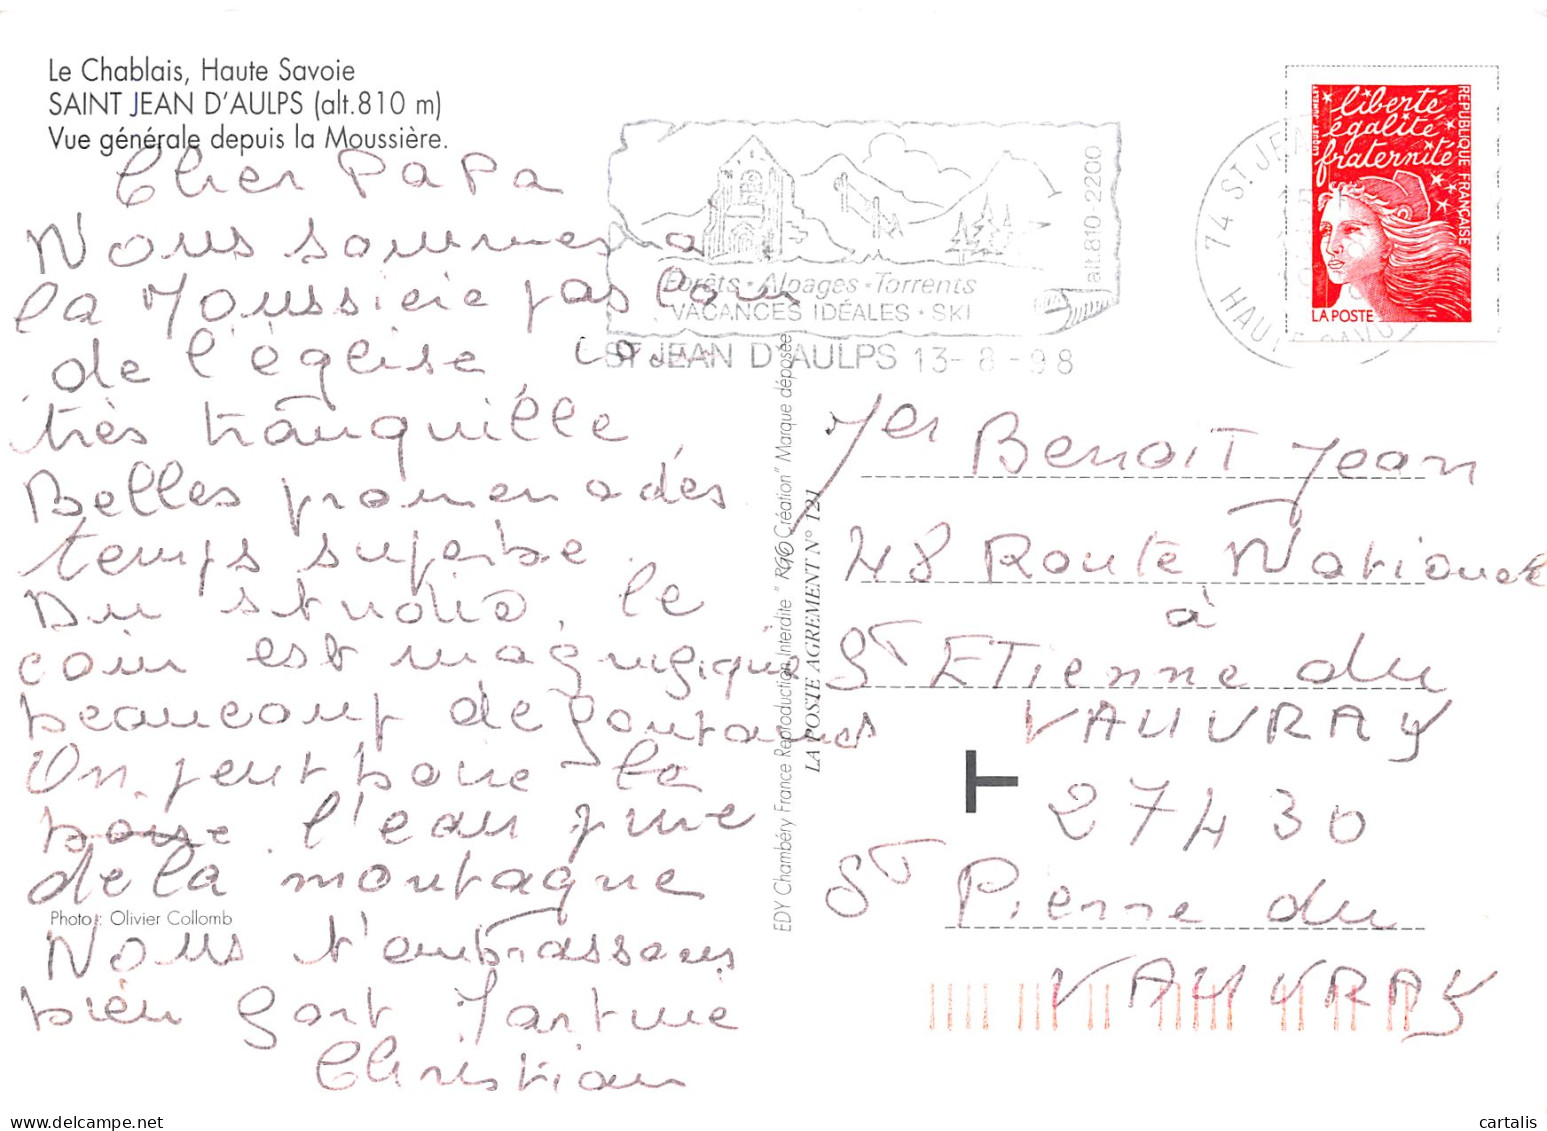 Le Chablais, Haute Savoie
SAINT JEAN D'AULPS (alt.810 m)
Vue générale depuis la Moussière.
Cher PaPa
Nous sommes a
la Moussiere pas loin
de l'église,
très tranquille
Belles promenades
temps superbe.
Du studio, le
coin est magnifique
beaucoup de
On peut boire la
boire l'eau pure
de la montagne
Photo : Olivier Collomb
Nous t'embrassons
bien fort Martine
Christian
EDY Chambéry France Reproduction Interdite "RGO Création" Marque déposée
LA POSTE AGREMENT N° 121
Forêts - Alpages - Torrents
VACANCES IDÉALES - SKI
alt.810-2200
ST JEAN D'AULPS 13-8-98
74 ST JE
HAUTE SAVO
liberté
égalité
fraternité
REPUBLIQUE FRANÇAISE
LA POSTE
LUQUET-JUMELET
Mer Benoit Jean
48 Route Nationale
à
St ETienne du
VAUVRAY
T
27430
St Pierre du
VAUVRAY
cartalis
www.delcampe.net